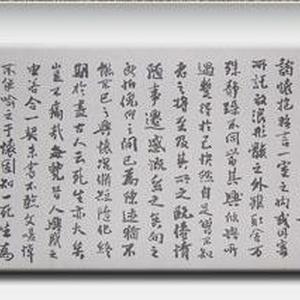 諸懷抱悟言一室之內或因寄
所託放浪形骸之外雖趣舍萬
殊靜躁不同當其欣於所
遇暫得於己怏然自足不知
老之將至及其所之既惓情
隨事遷感慨係之矣向之
所欣俛仰之間已為陳迹猶不
能不以之興懷況脩短隨化終
期於盡古人云死生亦大矣
豈不痛哉每攬昔人興感之
由若合一契未嘗不臨文嗟悼
不能喻之於懷固知一死生為